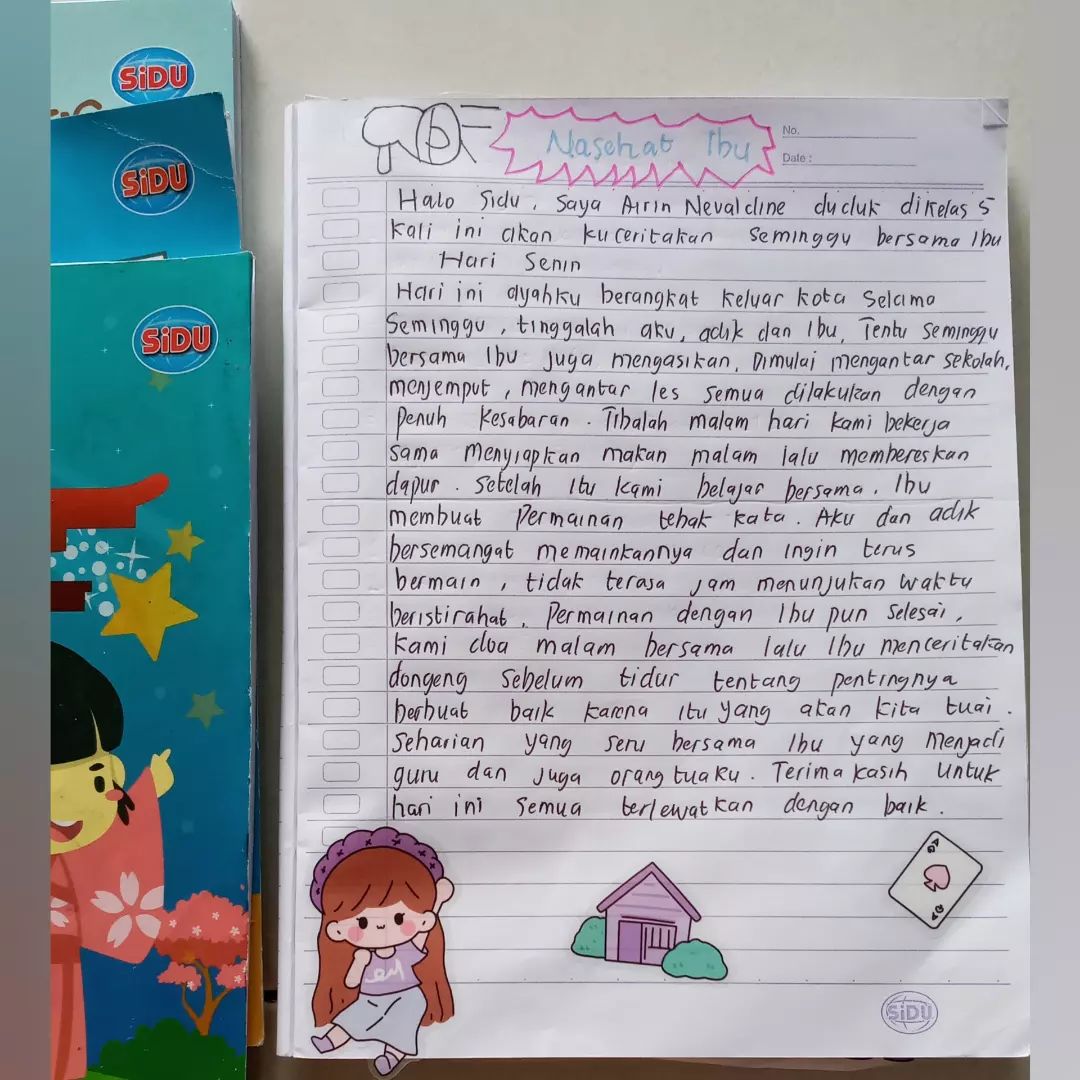 SiDU
SiDU
SiDU
Nasehat Ibu
No.
Date :
Halo Sidu, Saya Airin Nevalcline duduk dikelas 5
kali ini akan kuceritakan seminggu bersama Ibu
Hari Senin
Hari ini ayahku berangkat keluar kota selama
Seminggu, tinggalah aku, adik dan Ibu, Tentu seminggu
bersama Ibu juga mengasikan, Dimulai mengantar sekolah,
menjemput, mengantar les semua dilakukan dengan
Penuh kesabaran. Tibalah malam hari kami bekerja
sama menyiapkan makan malam lalu membereskan
dapur. Setelah itu kami belajar bersama. Ibu
membuat Permainan tebak kata. Aku dan adik
bersemangat memainkannya dan ingin terus
bermain, tidak terasa jam menunjukan waktu
beristirahat. Permainan dengan Ibu pun selesai,
Kami doa malam bersama lalu Ibu menceritakan
dongeng sebelum tidur tentang pentingnya
berbuat baik karena itu yang akan kita tuai.
Seharian yang seru bersama Ibu yang menjadi
guru dan juga orang tuaku. Terima kasih untuk
hari ini semua terlewatkan dengan baik.
SiDU